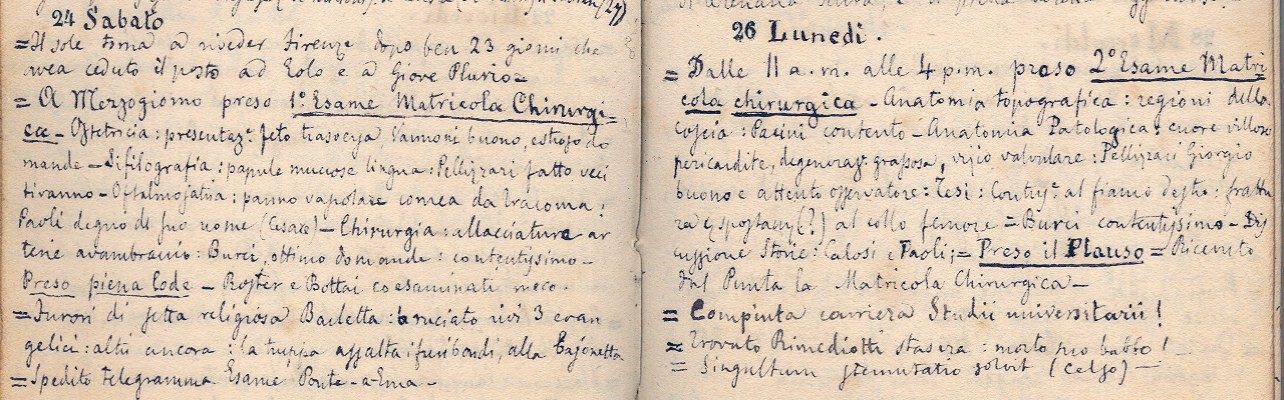 24 Sabato
= Il sole torna a riveder Firenze dopo ben 23 giorni che
avea ceduto il posto ad Eolo e a Giove Pluvio =
= A Mezzogiorno preso 1º. Esame Matricola Chirurgi-
ca - Ostetricia: presentaz.e feto trasversa, Vannoni buono, estese do
mande - Sifilografia: papule mucose lingua: Pellizzari fatto veci
tiranno - Oftalmojatria: panno vascolare cornea da tracoma:
Paoli degno di suo nome (Cesare) - Chirurgia: allacciature ar
terie avambraccio: Burci, ottime domande: contentissimo -
Preso piena lode - Roster e Bottai coesaminati meco.
= Furori di setta religiosa Barletta: bruciato vivi 3 evan
gelici: altri ancora: la truppa assalta i furibondi, alla bajonetta
= Spedito telegramma Esame Ponte-a-Ema -
26 Lunedì.
= Dalle 11 a.m. alle 4 p.m. preso 2º Esame Matri
cola chirurgica - Anatomia topografica: regioni della
coscia: Pacini contento - Anatomia Patologica: cuore villoso
pericardite, degeneraz.e grassosa, vizio valvulare: Pellizzari Giorgio
buono e attento osservatore: Tesi: Contus.e al fianco destro: frattu
ra (?) al collo femore = Burci contentissimo - Dis
cussione Storie: Calosi e Paoli; = Preso il Plauso = Ricevuto
dal Punta la Matricola Chirurgica -
= Compiuta carriera Studii universitarii!
= Trovato Rimediotti stasera: morto suo babbo!
= Singultum stemutatio solvit (Celso) -